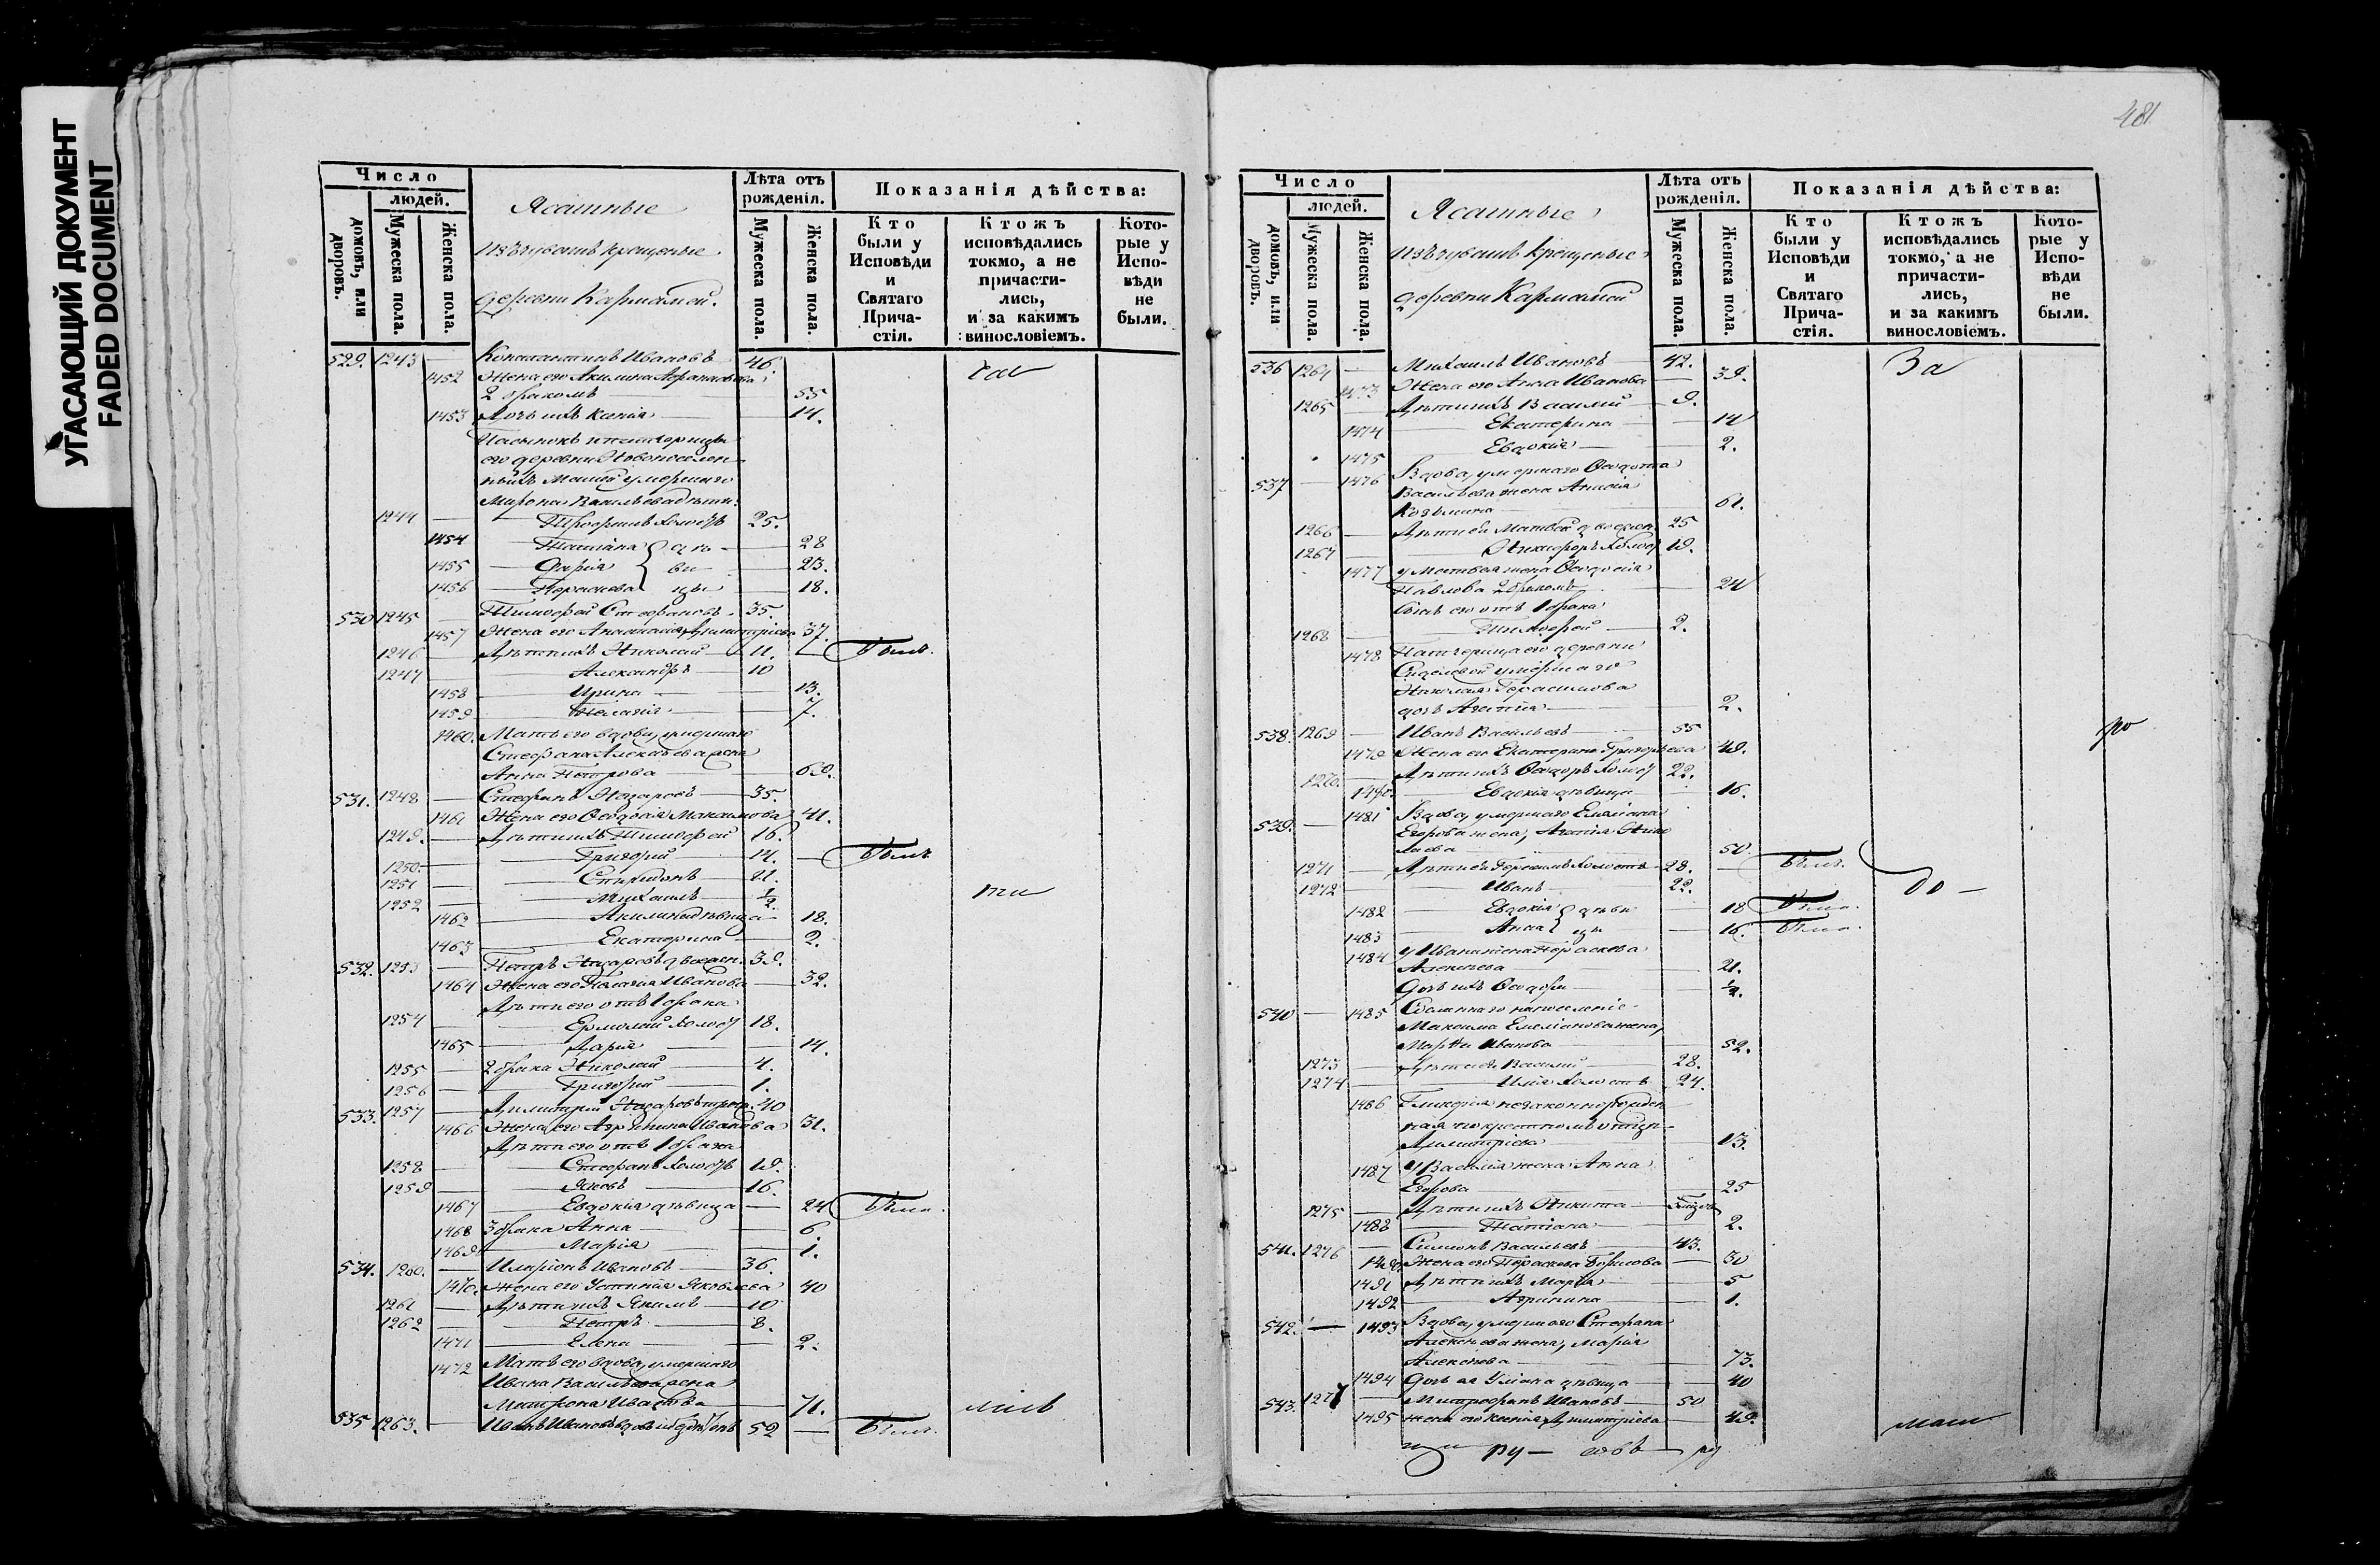 УГАСАЮЩИЙ ДОКУМЕНТ
FADED DOCUMENT
Число
людей.
домовъ, или дворовъ.
Мужеска пола.
Женска пола.
Ясашные
изъ чувашъ крещеные
деревни Кармамай.
Лѣта отъ рожденія.
Мужеска пола.
Женска пола.
Показанія дѣйства:
Кто были у Исповѣди и Святаго Прича-стія.
Ктожъ исповѣдались токмо, а не причасти-лись, и за какимъ винословіемъ.
Кото-рые у Испо-вѣди не были.
529. 1243 — Константинъ Ивановъ — 46.
1452 Жена его Акилина
2 бракомъ — 55
1453 Дочь ихъ Ксенія — 14.
Пасынокъ и падчерицы
его деревни Новопоселен-
ныхъ умершаго
Мирона Васильева дѣти
1244 — Трофимъ холостъ 25.
1454 — Татіана — 28
1455 — Дарія — 23.
1456 — Параскева — 18.
дѣ-
ви-
цы
530 1245 — Тимофей Стефановъ — 35.
1457 Жена его Анастасія Димитріева 37.
1246 — Дѣти ихъ Николай — 11. — Былъ.
1247 — Александръ 10
1458 — Ирина — 13.
1459 — Пелагія — 7.
1460. Мать его вдова, умершаго
Стефана Алексѣева жена
Анна Петрова — 69.
531. 1248 — Стефанъ Назаровъ — 35.
1461 Жена его Ѳеодосія Максимова 41.
1249. — Дѣти ихъ Тимофей 16.
1250. — Григорий — 14. — Былъ
1251 — Спиридонъ — 11.
1252 — Михаилъ — ½.
1462 — Акилина дѣвица — 18.
1463 — Екатерина — 2.
532. 1253 — Петръ Назаровъ двоежен. 39.
1464 Жена его Пелагия Иванова — 32.
Дѣти его отъ 1 брака
1254 — Ермолай холост 18.
1465 — Дарія — 14.
1255 — 2 брака Николай — 4.
1256 — Григорий — 1.
533. 1257 — Димитрий Назаровъ троеж. 40
1466 Жена его Агрипина Иванова 31.
Дѣти его отъ 1 брака
1258 — Стефанъ холостъ 19.
1259 — Яковъ — 16.
1467 — Евдокія дѣвица — 24 Была.
1468 3 брака Анна — 6.
1469 — Марія — 1.
534. 1260. — Иларіонъ Ивановъ — 36.
1470. Жена его Устинія Яковлева 40
1261 — Дѣти ихъ Якимъ — 10
1262 — Петръ — 8.
1471 — Елена — 2.
1472 Мать его вдова, умершаго
Ивана Васильева жена
Матрона Иванова — 71.
535 1263. — Иванъ Ивановъ 52 — Былъ.
481
Число
людей.
домовъ, или дворовъ.
Мужеска пола.
Женска пола.
Ясашные
изъ чувашъ крещеные
деревни Кармамай
Лѣта отъ рожденія.
Мужеска пола.
Женска пола.
Показанія дѣйства:
Кто были у Исповѣди и Святаго Прича-стія.
Ктожъ исповѣдались токмо, а не причасти-лись, и за какимъ винословіемъ.
Кото-рые у Испо-вѣди не были.
536 1264 — Михаилъ Ивановъ — 42. За
1473 Жена его Анна Иванова — 39.
1265 — Дѣти ихъ Василий — 9.
1474 — Екатерина — 14
1475 — Евдокія — 2.
537 — 1476 Вдова, умершаго Ѳеодота
Васильева жена
Козьмина — 61.
1266 — Дѣти ея Матвей двоежен. 25
1267 — Никифоръ холост 19.
1477 у Матвея жена Ѳеодосія
Павлова 2 бракомъ — 24
Сынъ его отъ 1 брака
1268 — Тимофей — 2.
1478 Падчерица его деревни
умершаго
Николая Герасимова
дочь — 2.
538. 1269 — Иванъ Васильевъ — 55
1479 Жена его Екатерина Григорьева 49.
1270. — Дѣти ихъ Ѳедоръ холост 22.
1480. — Евдокія дѣвица — 16.
539. — 1481 Вдова, умершаго Емеліана
Егорова жена, Нико-
лаева — 50.
1271 — Дѣти ея Герасимъ холостъ 28. — Былъ.
1272 — Иванъ — 22.
1482 — Евдокія — 18 Была.
1483 — Анна — 16. Была.
дѣви-
цы
1484 у Ивана жена Параскева
Алексѣева — 21.
Дочь ихъ Ѳеодора — ½.
540 — 1485 Сосланнаго на поселеніе
Максима Емеліанова жена,
Марѳа Иванова — 52.
1273 — Дѣти ея Василий — 28.
1274 — Илія холостъ 24.
1486 Гликерія незаконнорожден-
ная по крестномъ отцѣ
Димитріева — 13.
1487 у Василія жена Анна
Егорова — 25
1275 — Дѣти ихъ Никита —
1488 — Татіана — 2.
541. 1276 — Симеонъ Васильевъ — 43.
1490. Жена его Параскева Борисова — 30
1491 Дѣти ихъ Марѳа — 5
1492 — Агрипина — 1.
542. — 1493 Вдова, умершаго Стефана
Алексѣева жена, Марія
Алексѣева — 73.
1494 Дочь ея Уліана дѣвица — 40
543. 1277 — Митрофанъ Ивановъ — 50
1495 Жена его Ксенія Димитріева — 49.